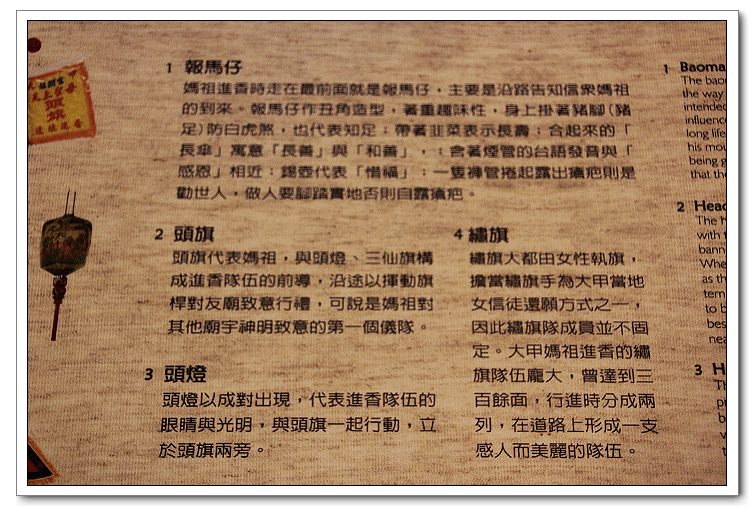 1 報馬仔
媽祖進香時走在最前面就是報馬仔，主要是沿路告知信眾媽祖
的到來。報馬仔作丑角造型，著重趣味性，身上掛著豬腳(豬
足)防白虎煞，也代表知足；帶著韭菜表示長壽；合起來的「
長傘」寓意「長善」與「和善」，；含著煙管的台語發音與「
感恩」相近；錫壺代表「惜福」；一隻褲管捲起露出瘡疤則是
勸世人，做人要腳踏實地否則自露瘡疤。
2 頭旗
頭旗代表媽祖，與頭燈、三仙旗構
成進香隊伍的前導，沿途以揮動旗
桿對友廟致意行禮，可說是媽祖對
其他廟宇神明致意的第一個儀隊。
3 頭燈
頭燈以成對出現，代表進香隊伍的
眼睛與光明，與頭旗一起行動，立
於頭旗兩旁。
4 繡旗
繡旗大都由女性執旗，
擔當繡旗手為大甲當地
女信徒還願方式之一，
因此繡旗隊成員並不固
定。大甲媽祖進香的繡
旗隊伍龐大，曾達到三
百餘面，行進時分成兩
列，在道路上形成一支
感人而美麗的隊伍。
1 Baoma
The bao
the way
intended
influence
long life
his mou
being g
that the
2 Head
The h
with t
bann
Whe
as th
tem
to b
bes
nea
3 H
Th
頭旗